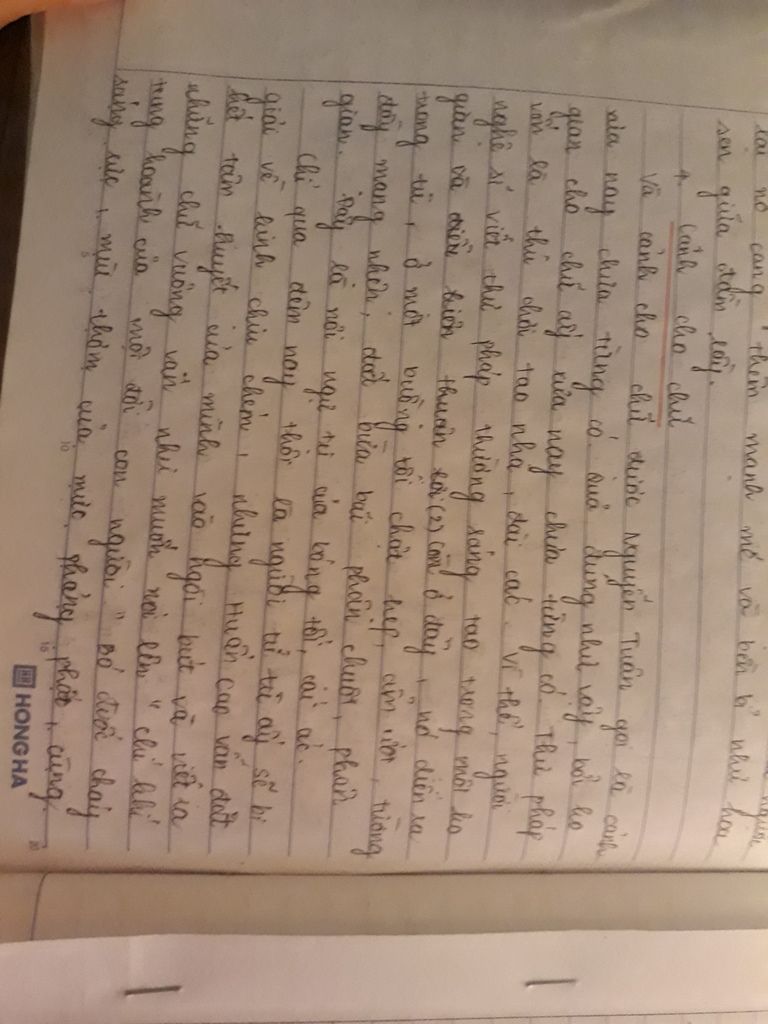 lại nó càng thêm mạnh mẽ và bền bỉ như hoa
sen giữa đầm lầy.
* Cảnh cho chữ
Và cảnh cho chữ được Nguyễn Tuân gọi là cảnh
xưa nay chưa từng có. Quả đúng như vậy, bởi ko
gian cho chữ ấy xưa nay chưa từng có. Thư pháp
vốn là thú chơi tao nhã, đài các. Vì thế, người
nghệ sĩ viết thư pháp thường sáng tạo trong một ko
gian và điều kiện thuận lợi (2) Còn ở đây, nó diễn ra
trong tù, ở một buồng tối chật hẹp, ẩm ướt, tường
đầy mạng nhện, đất bừa bãi phân chuột, phân
gián. Đây là nơi ngự trị của bóng tối, cái ác.
Chỉ qua đêm nay thôi là người tử tù ấy sẽ bị
giải về kinh chịu chém, nhưng Huấn Cao vẫn dồn
hết tâm huyết của mình vào ngòi bút và viết ra
những chữ vuông vắn như muốn nói lên "chí khí
tung hoành của một đời con người" Bó đuốc cháy
sáng rực, mùi thơm của mực phảng phất, cũng
5
10
15
20
HONG HA